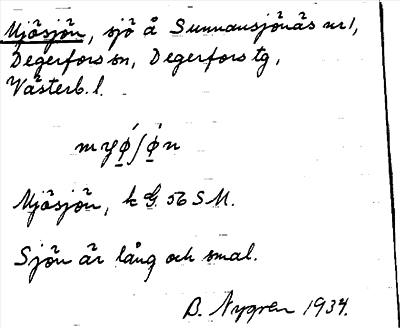 Mjösjön, sjö å Sunnansjönäs nr 1,
Degerfors sn, Degerfors tg,
Västerb. l.
Mjösjön, k G. 56 SM.
Sjön är lång och smal.
B. Nygren 1934.